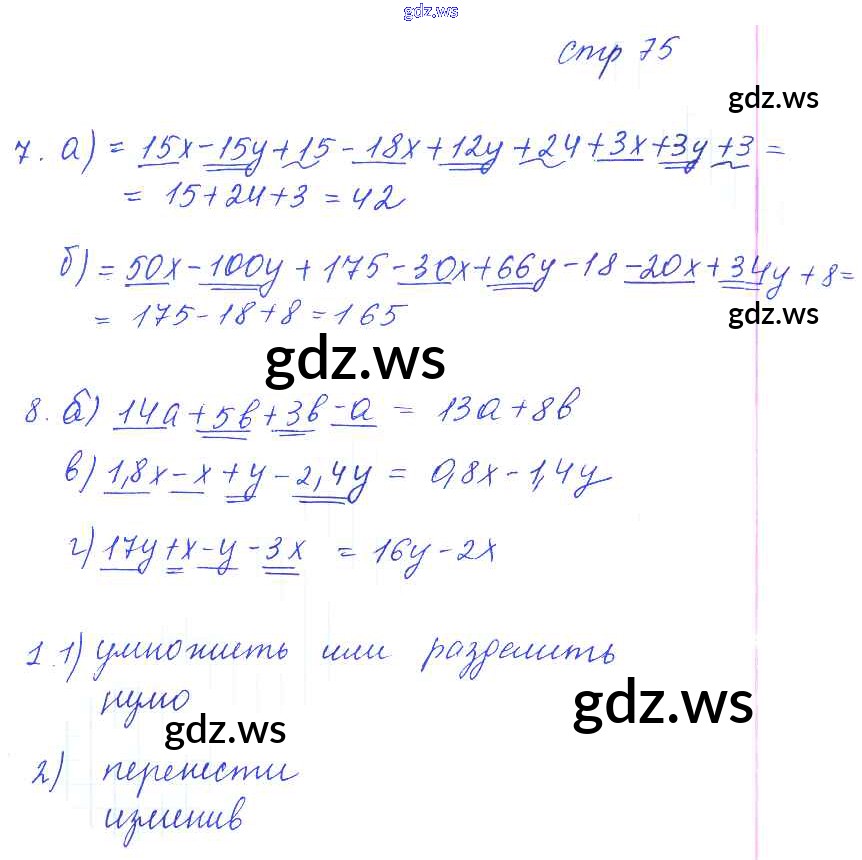 gdz.ws
стр 75
gdz.ws
7. а) = 15x-15y+15-18x+12y+24+3x+3y+3=
= 15+24+3=42
б) = 50x-100y+175-30x+66y-18-20x+34y+8=
= 175-18+8=165
gdz.ws
gdz.ws
8. б) 14a+5b+3b-a = 13a+8b
в) 1,8x-x+y-2,4y = 0,8x-1,4y
gdz.ws
г) 17y+x-y-3x = 16y-2x
1.1) умножить или разделить
нумо
gdz.ws
gdz.ws
2) перенести
изменив